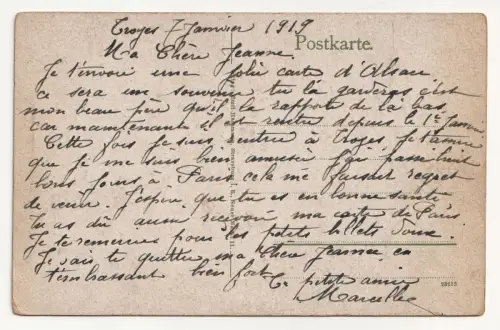 Troyes 7 Janvier 1919
Postkarte.
Ma Chère Jeanne.
Je t'envoie une jolie carte d'Alsace
ca sera une souvenir tu la garderas c'est
mon beau père qu'il la rapporte de la bas
car maintenant il est rentré depuis le 1er Janvier
Cette fois je suis rentrée à Troyes Je t'assure
que je me suis bien amusée j'ai passé huit
bons jours à Paris cela me faisait regret
de venir. J'espère que tu es en bonne santé
Tu as dû aussi recevoir ma carte de Paris
Je te remercie pour les petits billets doux.
Je vais te quitter ma Chère Jeanne en
t'embrassant bien fort
Ta petite amie
Marcelle